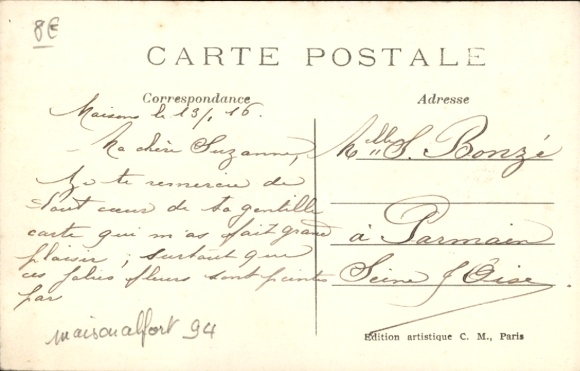 8€
CARTE POSTALE
Correspondance
Maisons le 13/1 16.
Ma chère Suzanne,
Je te remercie de
tout cœur de ta gentille
carte qui m'as fait grand
plaisir ; surtout que
ces jolies fleurs sont peintes
par
maisonalfort 94
Adresse
Mlle S. Bonzé
à Parmain
Seine & Oise
Edition artistique C. M., Paris